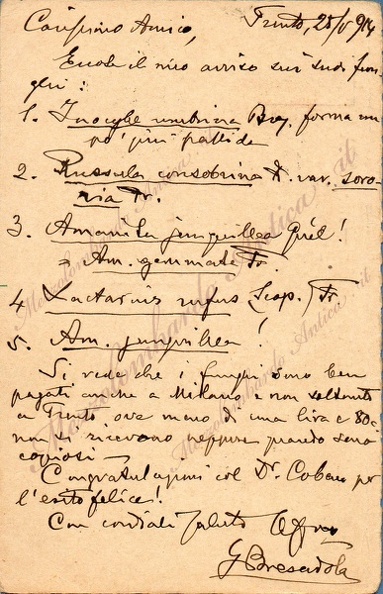 Carissimo Amico, Trento, 25/V 914
Eccole il mio avviso sui suoi fun
ghi:
1. Inocybe umbrina Brs. forma un
po' più pallida
2. Russula consobrina Fr. var. soro-
ria Fr.
3. Amanita junquillea Quél!
= Am. gemmata Fr.
4 Lactarius rufus Scop.) Fr.
5. Am. junquillea!
Si vede che i funghi sono ben
pagati anche a Milano e non soltanto
a Trento, ove meno di una lira e 80c.
non si ricevono neppure quando sono
copiosi -
Congratulazioni col Dr. Coban per
l'esito felice!
Con cordiali saluti
G Bresadola
Mezzolombardo Antica.it
Mezzolombardo Antica.it
Mezzolombardo Antica.it